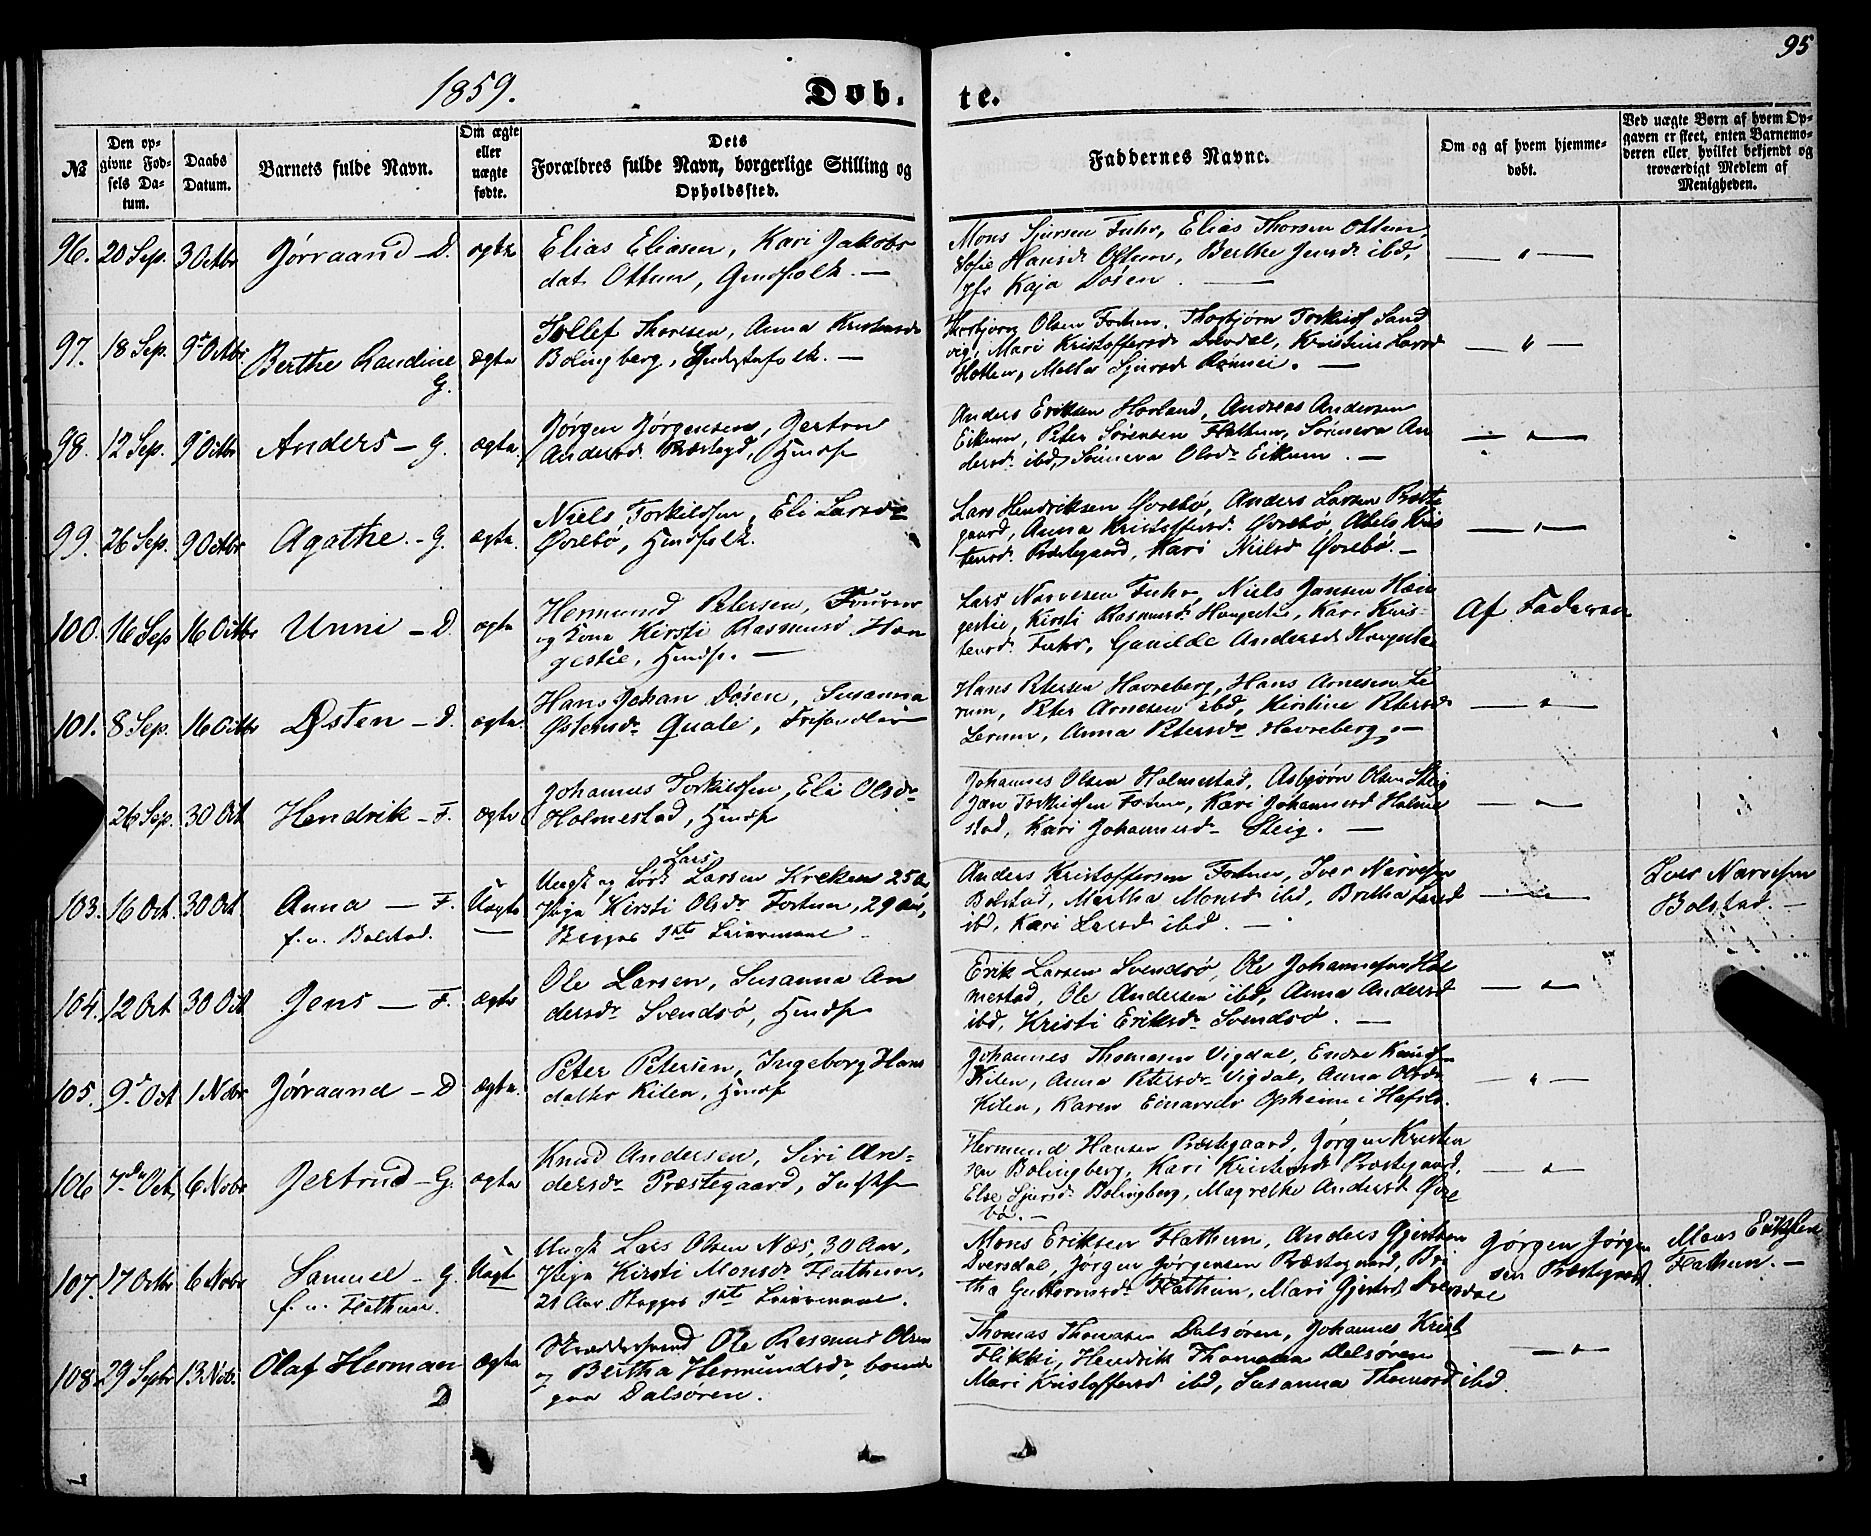 95
1859.
Døb. te.
No
Den opgivne Fødsels Datum.
Daabs Datum.
Barnets fulde Navn.
Om ægte eller uægte fødte.
Dets Forældres fulde Navn, borgerlige Stilling og Opholdssted.
Faddernes Navne.
Om og af hvem hjemmedøbt.
Ved uægte Børn af hvem Opgaven er skeet, enten Barnemoderen eller, hvilket bekjendt og troværdigt Medlem af Menigheden.
96. 20 Sep. 3 Octbr Jørraand – D. ægte
Elias Eliasen, Kari Jakobs
dat. Ottum, Gmdfolk. —
Mons Sjursen Fuhr, Elias Thorsen Ottum,
Sofie Hansd Ottum, Berthe Jensd. ibd,
Jfr Kaja Døsen. —
— " —
97. 18 Sep. 9de Octbr Berthe Randine G. ægte
Tollef Thoresen, Anna Kristensd
Bolingberg, —
Olsen Fortun, Thorbjørn Torkilds Sand
vig, Mari Kristoffersd , Kristine Larsd
Sjursd —
— " —
98. 12 Sep. 9 Octbr Anders – G. ægte
Jørgen Jørgensen, Jertru
Andersd. Præstegd, Hmdsf
Anders Eriksen Horland, Andreas Andersen
Eikum, Peter Sørensen Flathum, Sørineva An
dersd. ibd, Sinneva Olsdr Eikum. —
— " —
99. 26 Sep. 9 Octbr Agathe – G. ægte.
Niels Torkildsen, Eli Larsdr
Øvrebø, Hmdfolk.
Lars Hendriksen Øvrebø, Anders Larsen Præste
gaard, Anna Kristoffersd. Øvrebø, Abels Kris
tensd. Præstegaard, Kari Nielsd Øvrebø. —
— " —
100. 16 Sep 16 Octbr Unni – D. ægte
Hermund Petersen,
og Kona Kirsti Rasmusd. Hæn
gestie, Hmdsf. —
Lars Narvesen Fuhr, Niels Jansen Hæn
gestie, Kirsti Rasmusd. Hængestie, Kari Kris
tensd. Fuhr, Gunilde Andersd.
Af Faderen
101. 8 Sep. 16 Octbr Østen – D. ægte.
Hans Johan Døsen, Susanna
Østensdr Quale,
Hans Petersen Havreberg, Hans Arnesen Le
rum, Peter Arnesen ibd, Kirstine Petersdr
Lerum, Anna Petersdr Havreberg. —
— " —
26 Sep. 30 Oct Hendrik – F. ægte
Johannes Torkildsen, Eli Olsdr
Holmestad, Hmdsf
Johannes Olsen Holmestad, Asbjørn Olsen Steig
Jan Torkildsen Fortun, Kari Johannesd Holme
stad, Kari Johannesd Steig. —
— " —
103. 16 Oct. 30 Oct Anna — F. Uægte
f. u. Bolstad.
Ungk og Lars Larsen Kreken 25 Aar
Pige Kirsti Olsdr Fortun, 29 Aar,
Begges 1ste Leiermaal.
Anders Kristoffersen Fortun, Iver Narvesen
Bolstad, Martha Monsd ibd, Brita Larsd
ibd, Kari Larsd ibd. —
— " —
Iver Narvesen
Bolstad. —
104. 12 Oct 30 Oct Jens — F. ægte
Ole Larsen, Susanna An
dersdr Svendsø, Hmdsf
Erik Larsen Svendsø, Ole Johannesen Hol
mestad, Ole Andersen ibd, Anna Andersd
ibd, Kristi Eriksdr Svendsø. —
— " —
105. 9de Oct 1 Nobr Jørraand – D ægte.
Peter Petersen, Ingeborg Hans
datter Kilen, Hmdsf
Johannes Thomasen Vigdal, Endre Knudsen
Kilen, Anna Petersdr Vigdal, Anna Olsdr
Kilen, Karen Einarsdr Opheim i Hafslo.
— " —
106 7de Oct. 6 Nobr Jertrud – G. ægte
Knud Andersen, Siri An-
dersdr Præstegaard,
Hermund Hansen Præstegaard, Jørgen Kristen
sen Bolingberg, Kari Kristensd Præstegaard,
Else Sjursd Bolingberg, Magrethe Andersd Øvre
bø. —
— " —
107. 17 Octbr 6 Nobr Samuel – G. Uægte
f. u. Flathum.
Ungk Lars Olsen Næs, 30 Aar,
Pige Kirsti Monsdr Flathum,
21 Aar Begges 1ste Leiermaal.
Mons Eriksen Flathum, Anders Gjertsen
Dversdal, Jørgen Jørgensen Præstegaard, Bri
tha Guttormsd Flathum, Mari Gjertsd Dversdal
Jørgen Jørgen
sen Præstegaard.
Mons Eriksen
Flathum. —
108. 29 Septbr 13 Nob. Olaf Herman D ægte
Skræddersvend Ole Rasmus Olsen
og Beritha Hermundsdr, boende
paa Dalsøren.
Thomas Thomasen Dalsøren, Johannes Krist
Flikki, Hendrik Thomasen Dalsøren
Mari Kristoffersd ibd, Susanna Thomasd ibd.
— " —